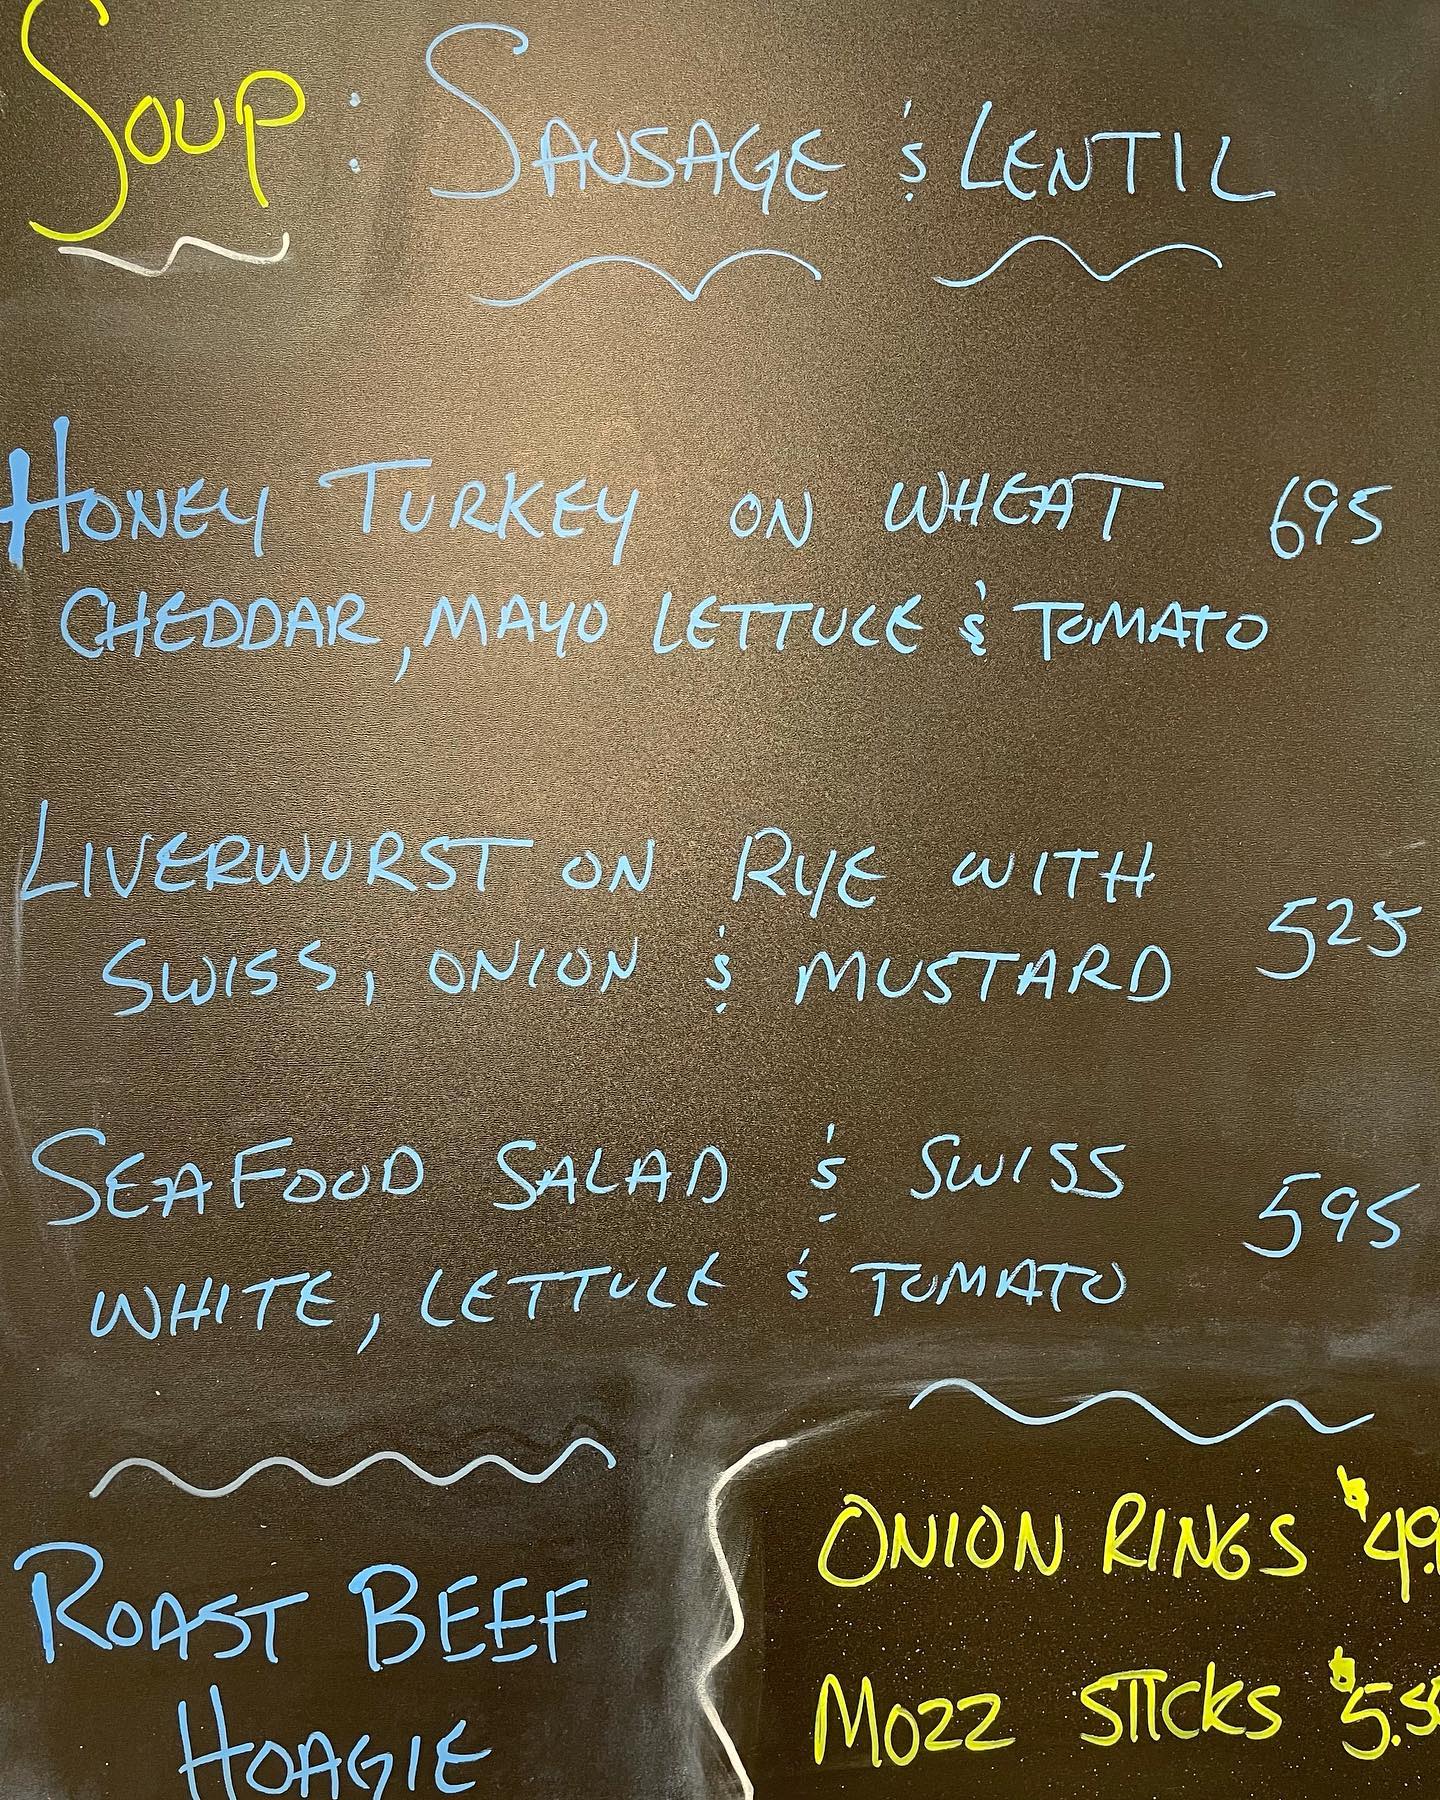 SOUP: SAUSAGE & LENTIL
HONEY TURKEY ON WHEAT 695
CHEDDAR, MAYO LETTUCE & TOMATO
LIVERWURST ON RYE WITH
SWISS, ONION & MUSTARD 525
SEAFOOD SALAD & SWISS
WHITE, LETTUCE & TOMATO 595
ROAST BEEF
HOAGIE
ONION RINGS $49
MOZZ STICKS $5.5